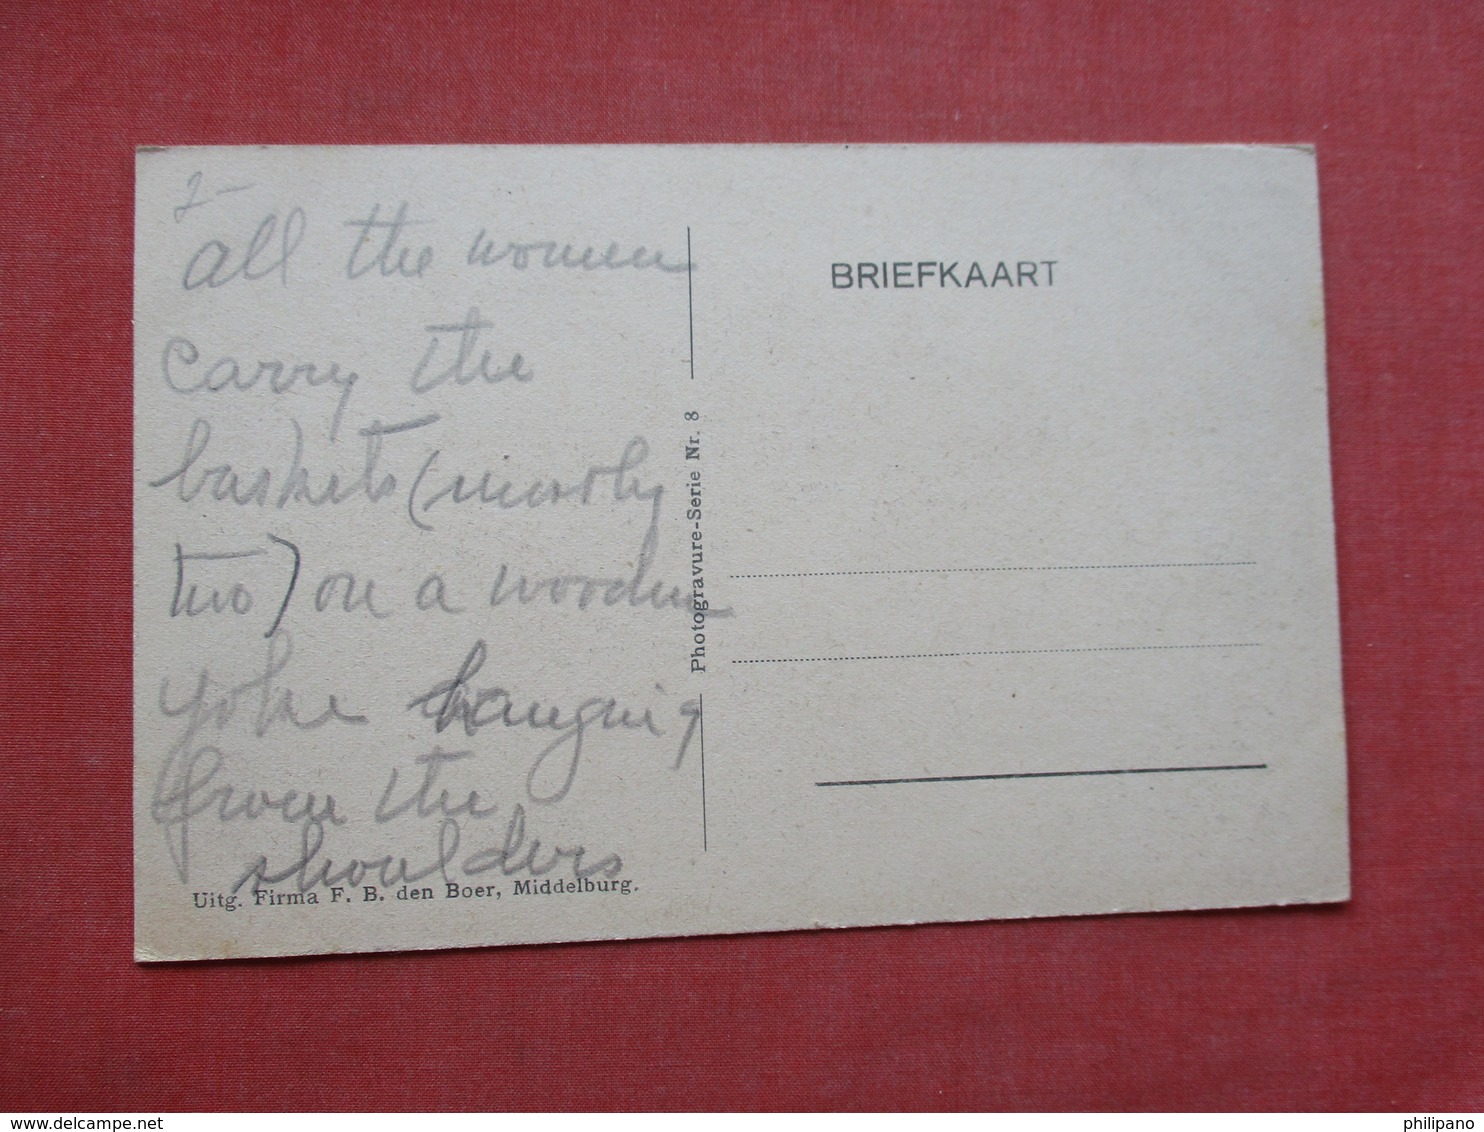 2-
all the women
carry the
baskets (mostly
two) on a wooden
yoke hanging
from the
shoulders
Uitg. Firma F. B. den Boer, Middelburg.
Photogravure-Serie Nr. 8
BRIEFKAART
www.delcampe.net
philipano